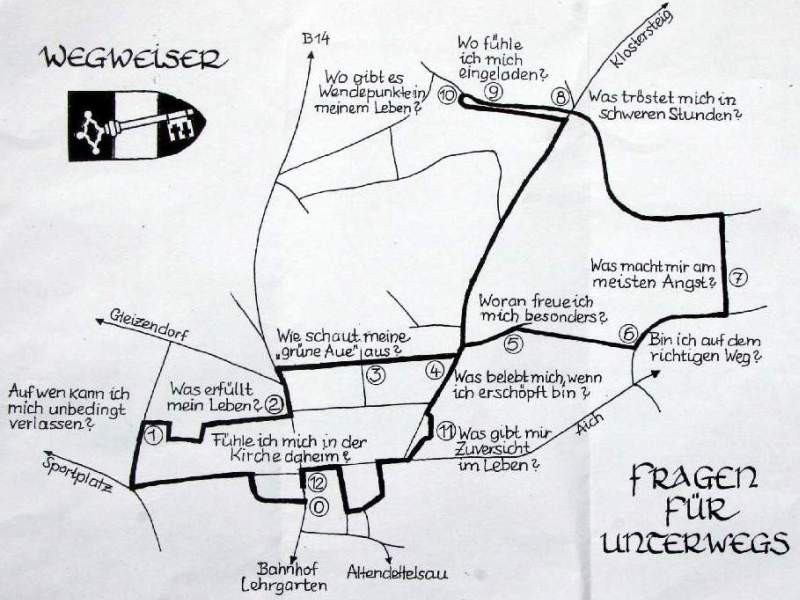 WEGWEISER
B14
Wo gibt es
Wendepunkte in
meinem Leben?
10
Wo fühle
ich mich
eingeladen?
9
8
Klostersteig
Was tröstet mich in
schweren Stunden?
Was macht mir am
meisten Angst?
7
Woran freue ich
mich besonders?
5
6
Bin ich auf dem
richtigen Weg?
Gleizendorf
Wie schaut meine
„grüne Aue" aus?
3
4
Was belebt mich, wenn
ich erschöpft bin?
Auf wen kann ich
mich unbedingt
verlassen?
1
Was erfüllt
mein Leben?
2
Fühle ich mich in der
Kirche daheim?
11
Was gibt mir
Zuversicht
im Leben?
Aich
Sportplatz
12
0
Bahnhof
Lehrgarten
Altendettelsau
FRAGEN
FÜR
UNTERWEGS